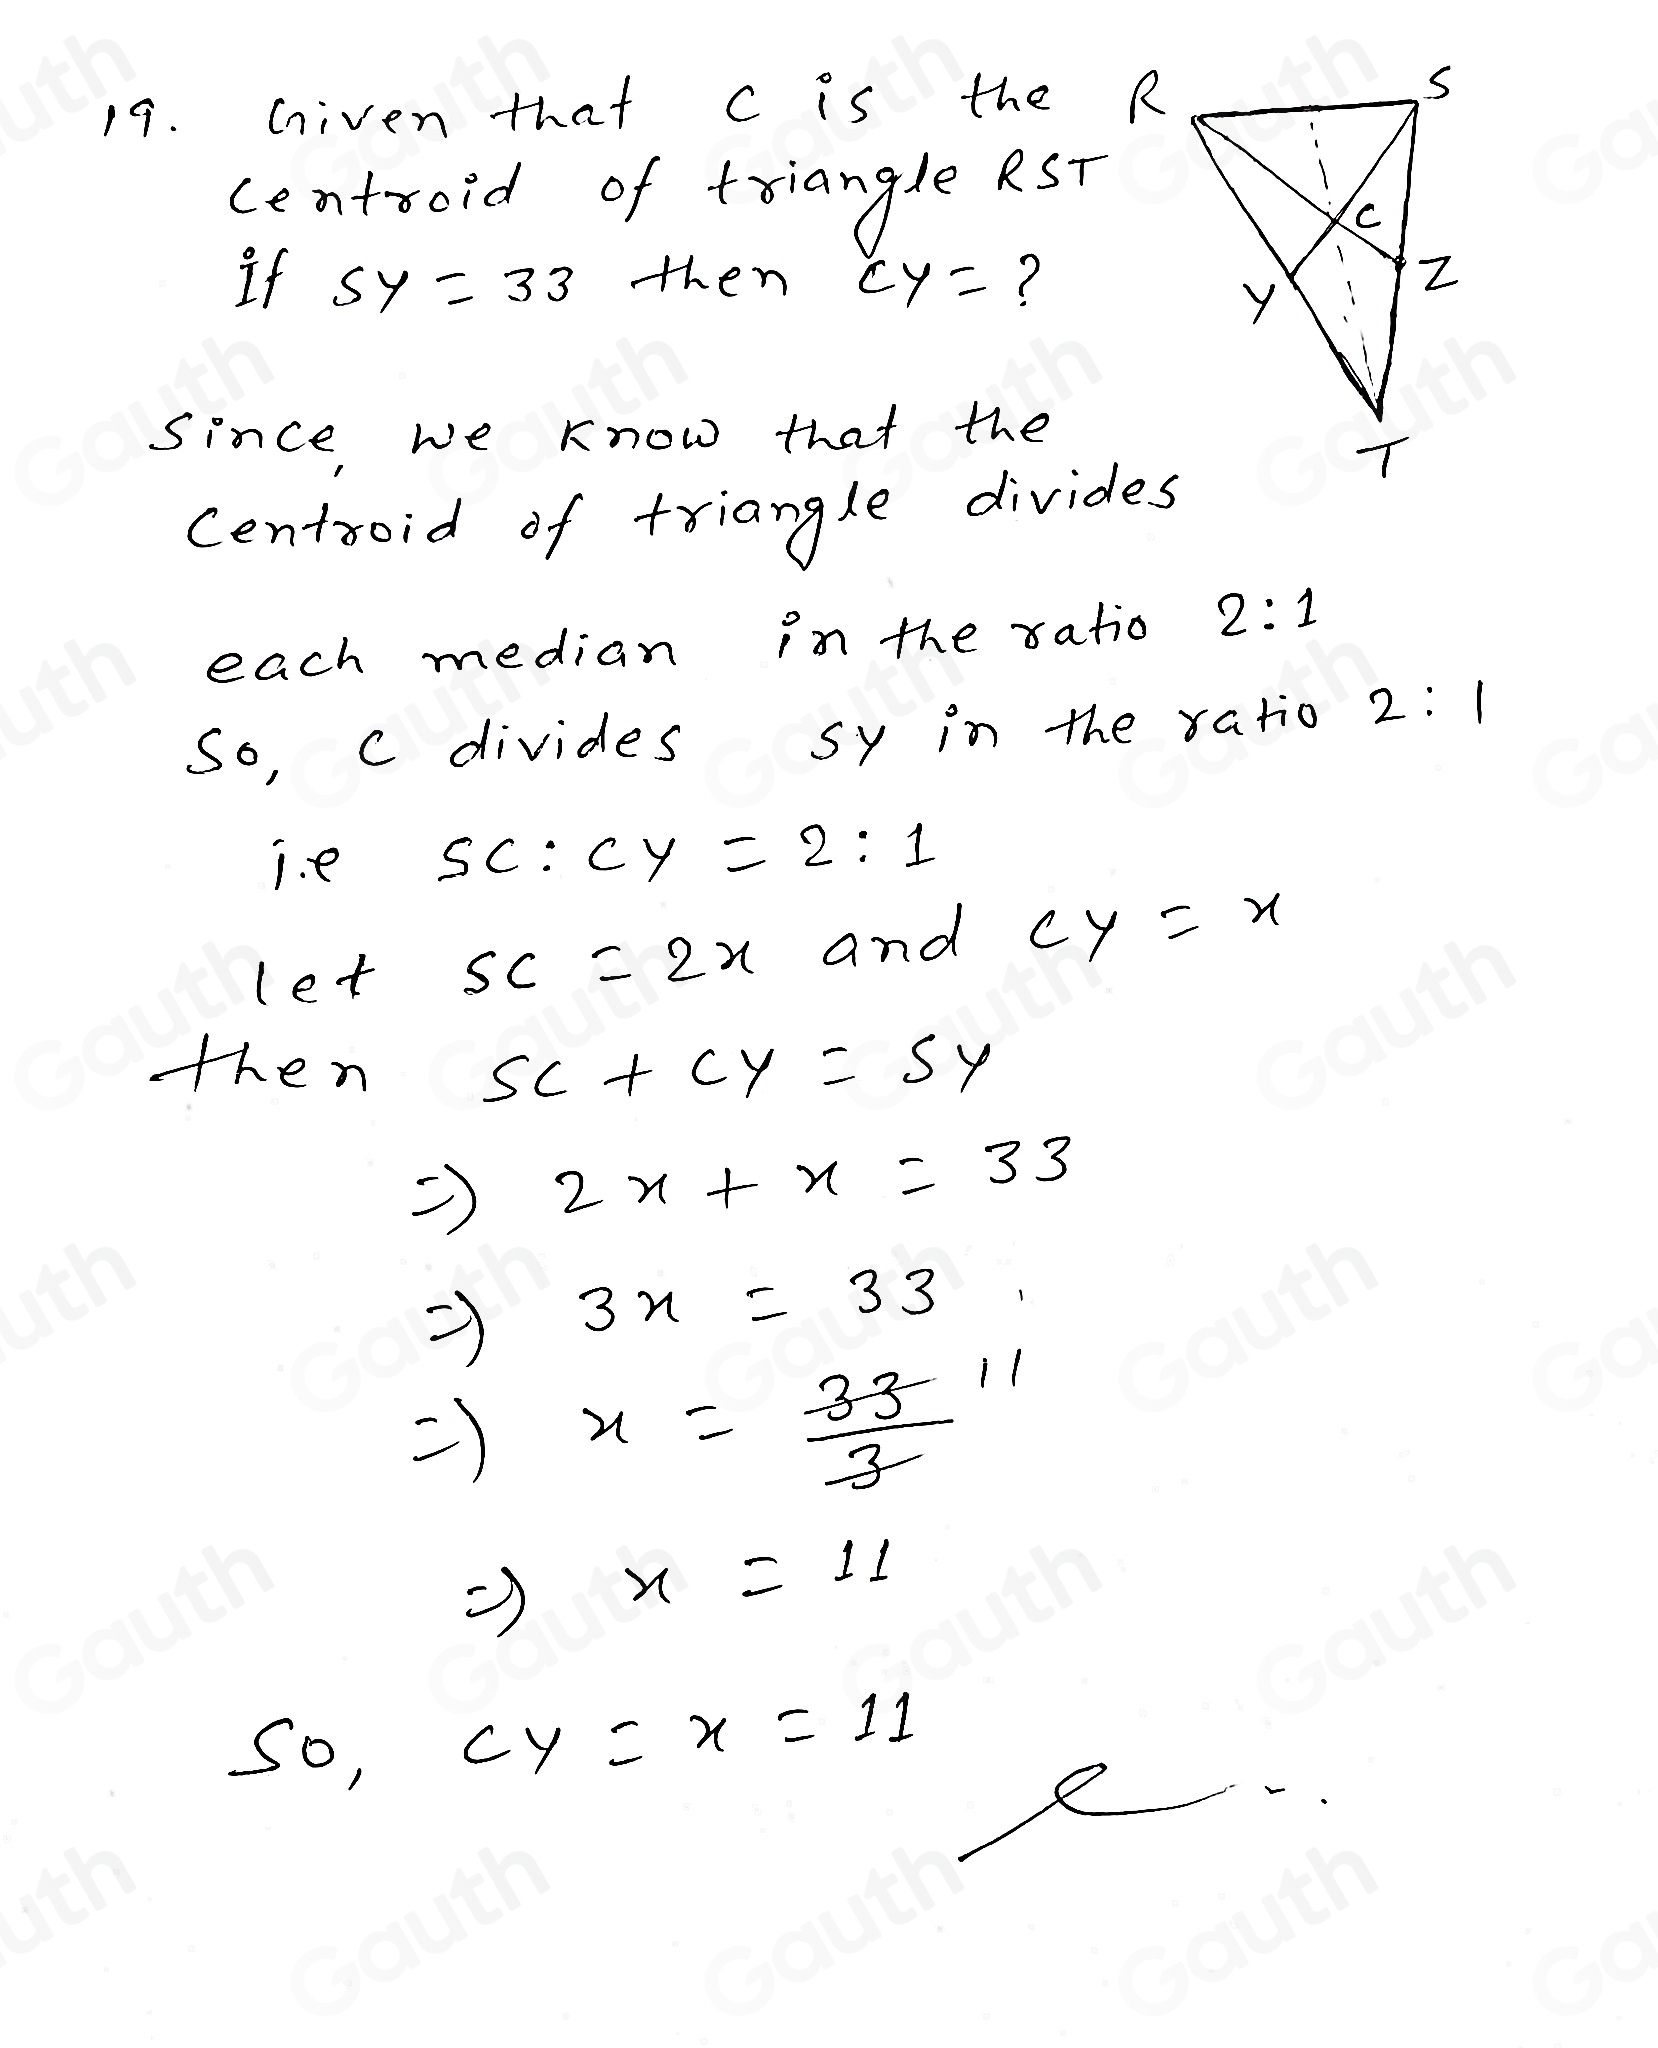 19. Given that C is the
centroid of triangle RST
if SY = 33 then CY = ?
R
S
C
Y
Z
T
Since, we know that the
Centroid of triangle divides
each median in the ratio 2:1
So, C divides SY in the ratio 2:1
i.e SC:CY = 2:1
let SC = 2x and CY = x
then SC + CY = SY
=) 2x + x = 33
=) 3x = 33
=) x = 33/3 11
=) x = 11
So, CY = x = 11
Gauth